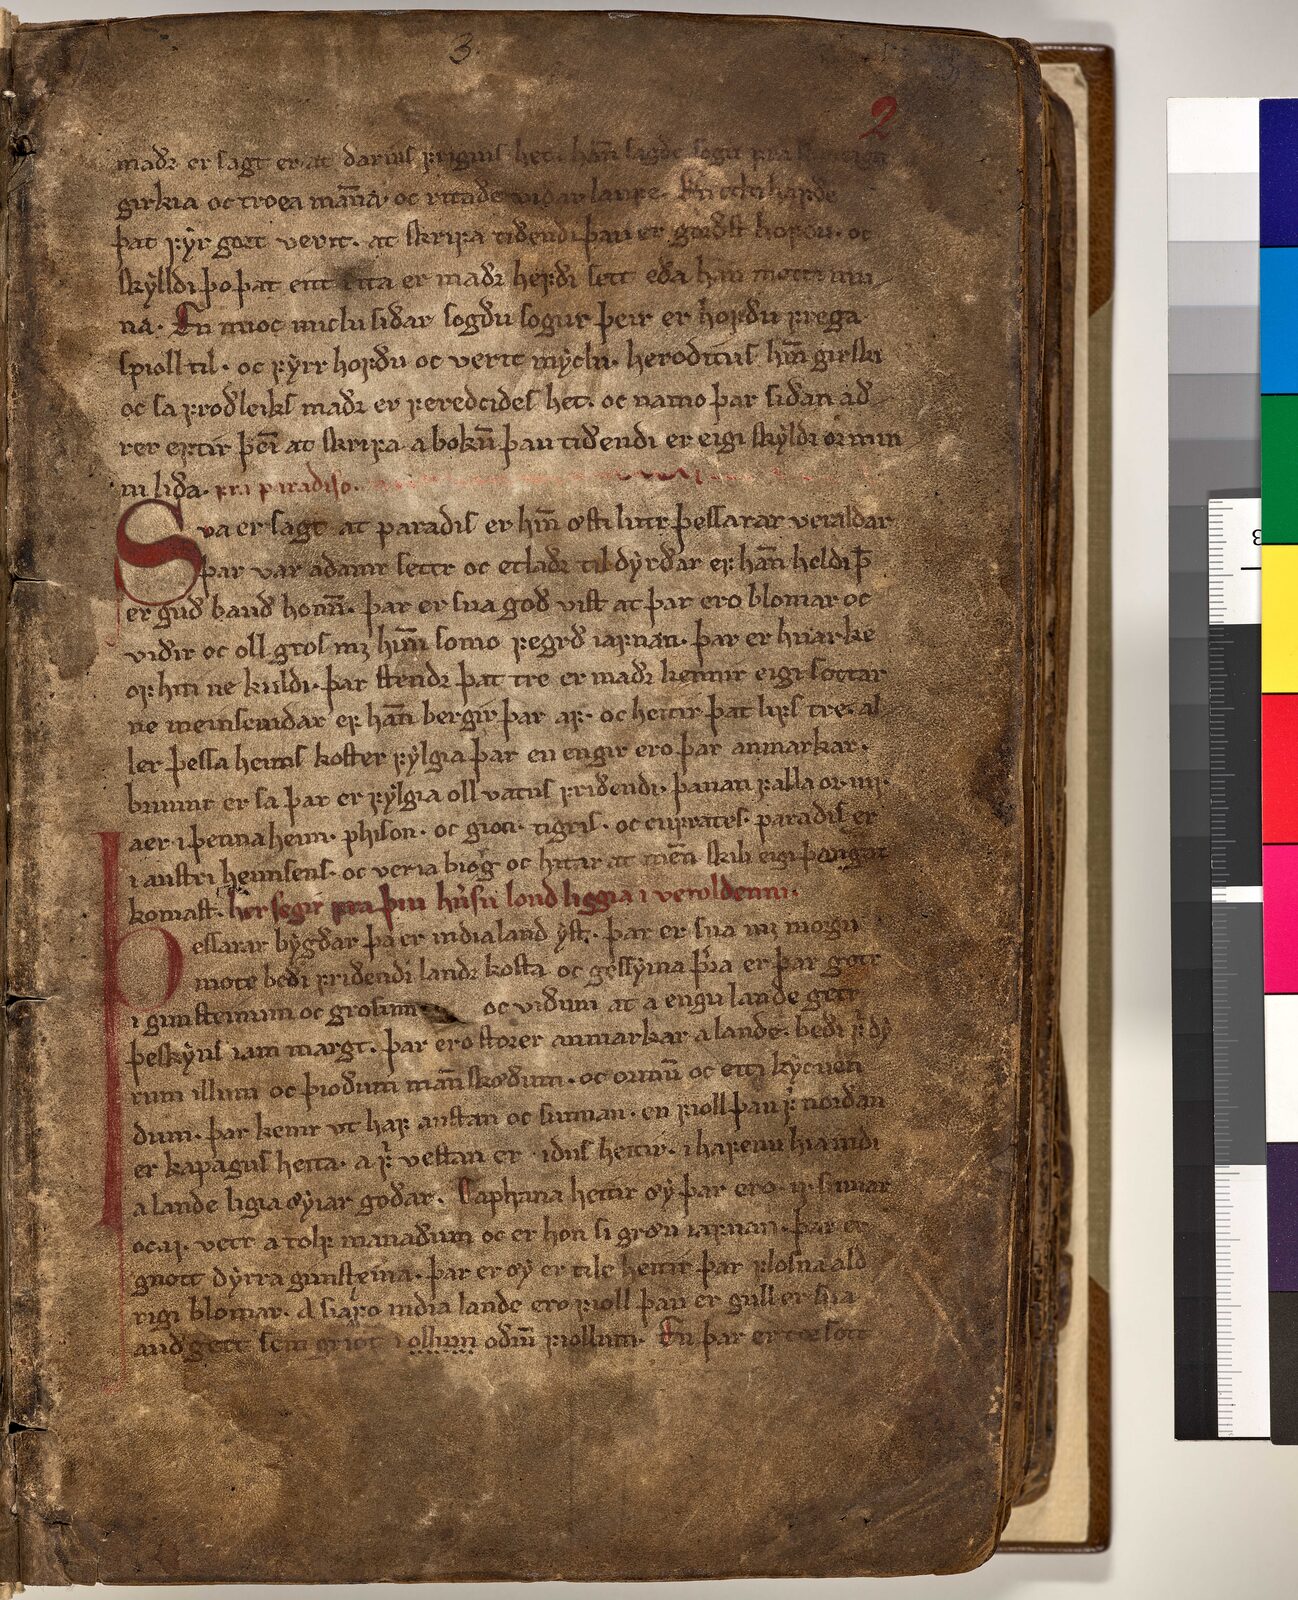 3.
2
maðꝛ er sagt er at darius frigius het. hań sagðe sogu fra
girkia oc troea mańa oc
þat fẏr goꝛt verit. at skrifa tiðendi þau er goꝛðsꞇ hofðu. oc
skẏlldi þo þat eitt rita er maðꝛ hefði sett eða
na. En mioc miclu siðar sogðu sogur þeir er hofðu frega
spioll til. oc fẏrr hofðu oc verit mẏclu. heroditus hiń girski
oc sa froðleiks maðꝛ er feredcides het. oc namo þar siðan að
rer eftir þei at skrifa a bokū þau tiðendi er eigi skẏldi oꝛ min
ni liða. fra paradiso.
Sva er sagt at paradis er hiń ꝍsti lutr þessarar veraldar
þar var adamr settr oc etlaðꝛ til dẏrðar ef hań heldi þ̄
er guð bauð honū. þar er sua goð vist at þar ero blomar oc
viðir oc oll gros mꝫ hiń somo fegrð iafnan. þar er huarke
ofhiti ne kuldi. þar stendꝛ þat tre er maðꝛ kennir eigi sottar
ne meinsemdar ef hań bergir þar af. oc heitir þat lifs tre. al
ler þessa heims koster fẏlgia þar en engir ero þar anmarkar.
brunnr er sa þar er fẏlgia oll vatns friðendi. þanan falla oꝛ .iiii.
aer i þenna heim. phison. oc gion. tigris. oc eufrates. paradis er
i austri heimsens. oc veria biọg oc hitar at meń skili eigi þangat
komast. her segir fra þui húsu lond liggia i veroldenni.
Þessarar bẏgðar þa er indialand ẏst. þar er sua mꝫ moꝛgu
mote beði friðendi landꝛ kosta oc gessẏina þ̄ra er þar gotr
i gimsteinum oc grosum oc viðum at a engu lande getr
þeskẏns iam margt. þar ero stoꝛer anmarkar a lande. beði ꝼ dẏ
rum illum oc þioðum mań skꝍðum. oc oꝛmū oc eitr kẏcuen
dum. þar kemr vt haf austan oc sunnan. en fioll þau ꝼ noꝛðan
er kapagus heita. a ꝼ vestan er .idus heitir. i hafenu hia indi
a lande ligia ꝍẏiar goðar. Taphana heitir ꝍẏ þar ero .ii. sumar
oc .ii. vetr a tolf manaðum oc er hon si grꝍn iafnan. þar er
gnott dẏrra gimsteina. þar er ꝍẏ er tile heitir þar flosna ald
rigi blomar. A siafo india lande ero fioll þau er gull er sua
auðgett sem griot i ollum oðrū fiollum. En þar er